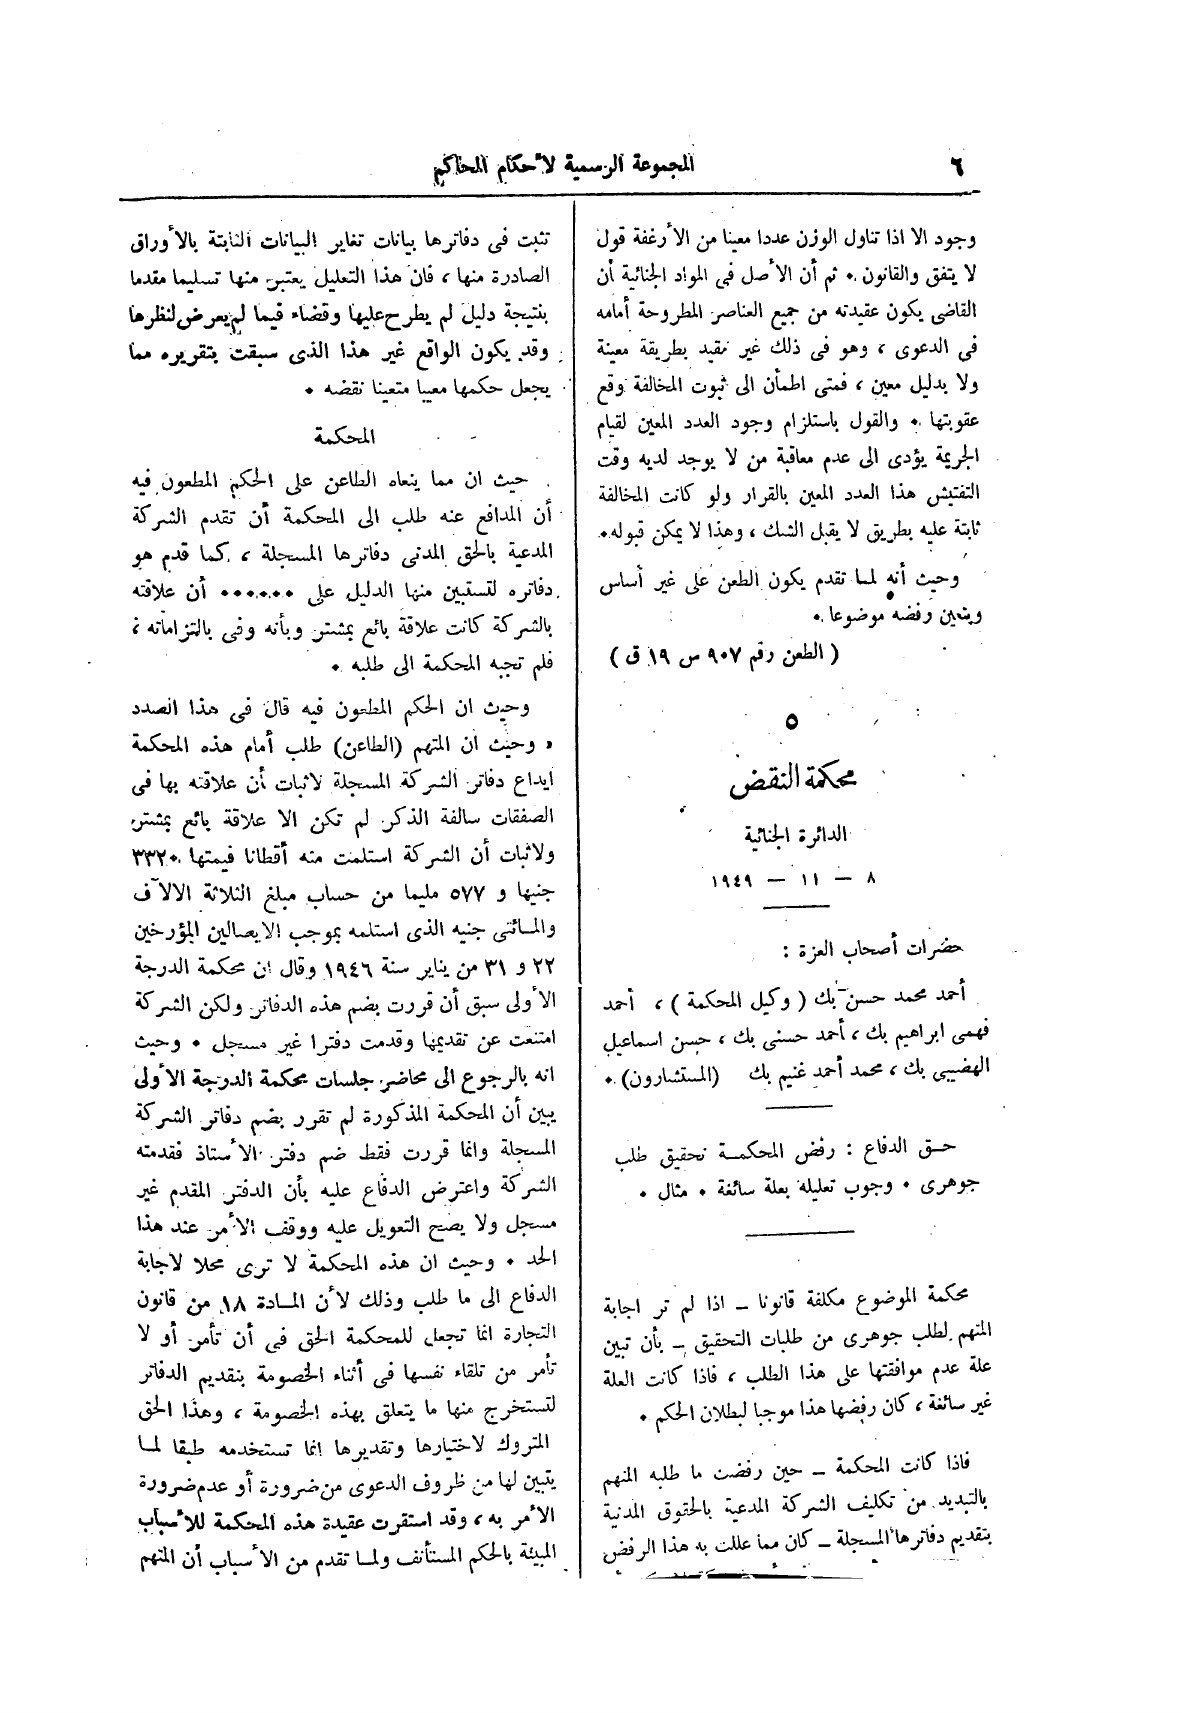 ٦
المجموعة الرسمية لأحكام المحاكم
وجود الا اذا تناول الوزن عددا معينا من الأرغفة قول
لا يتفق والقانون ٠ ثم أن الأصل فى المواد الجنائية أن
القاضى يكون عقيدته من جميع العناصر المطروحة أمامه
فى الدعوى ، وهو فى ذلك غير مقيد بطريقة معينة
ولا بدليل معين ، فمتى اطمأن الى ثبوت المخالفة وقع
عقوبتها ٠ والقول باستلزام وجود العدد المعين لقيام
الجريمة يؤدى الى عدم معاقبة من لا يوجد لديه وقت
التفتيش هذا العدد المعين بالقرار ولو كانت المخالفة
ثابتة عليه بطريق لا يقبل الشك ، وهذا لا يمكن قبوله ٠
وحيث أنه لما تقدم يكون الطعن على غير أساس
ويتعين رفضه موضوعا ٠
( الطعن رقم ٩٠٧ س ١٩ ق )
٥
محكمة النقض
الدائرة الجنائية
٨ – ١١ – ١٩٤٩
حضرات أصحاب العزة :
أحمد محمد حسن بك ( وكيل المحكمة ) ، أحمد
فهمى ابراهيم بك ، أحمد حسنى بك ، حسن اسماعيل
الهضيبى بك ، محمد أحمد غنيم بك (المستشارون) ٠
حـق الدفاع : رفض المحكمـة تحقيق طلب
جوهرى ٠ وجوب تعليله بعلة سائغة ٠ مثال ٠
محكمة الموضوع مكلفة قانونا – اذا لم تر اجابة
المتهم لطلب جوهرى من طلبات التحقيق – بأن تبين
علة عدم موافقتها على هذا الطلب ، فاذا كانت العلة
غير سائغة ، كان رفضها هذا موجبا لبطلان الحكم ٠
فاذا كانت المحكمة – حين رفضت ما طلبه المتهم
بالتبديد من تكليف الشركة المدعية بالحقوق المدنية
بتقديم دفاترها المسجلة – كان مما عللت به هذا الرفض
تثبت فى دفاترها بيانات تغاير البيانات الثابتة بالأوراق
الصادرة منها ، فان هذا التعليل يعتبر منها تسليما مقدما
بنتيجة دليل لم يطرح عليها وقضاء فيما لم يعرض لنظرها
وقد يكون الواقع غير هذا الذى سبقت بتقريره مما
يجعل حكمها معيبا متعينا نقضه ٠
المحكمة
حيث ان مما ينعاه الطاعن على الحكم المطعون فيه
أن المدافع عنه طلب الى المحكمة أن تقدم الشركة
المدعية بالحق المدنى دفاترها المسجلة ، كما قدم هو
دفاتره لتستبين منها الدليل على ٠٠٠٠٠٠ أن علاقته
بالشركة كانت علاقة بائع بمشتر وبأنه وفى بالتزاماته ؛
فلم تجبه المحكمة الى طلبه ٠
وحيث ان الحكم المطعون فيه قال فى هذا الصدد
« وحيث ان المتهم (الطاعن) طلب أمام هذه المحكمة
ايداع دفاتر الشركة المسجلة لاثبات أن علاقته بها فى
الصفقات سالفة الذكر لم تكن الا علاقة بائع بمشتر
ولاثبات أن الشركة استلمت منه أقطانا قيمتها ٣٣٢٠
جنيها و ٥٧٧ مليما من حساب مبلغ الثلاثة الالآف
والمـائتى جنيه الذى استلمه بموجب الايصالين المؤرخين
٢٢ و ٣١ من يناير سنة ١٩٤٦ وقال ان محكمة الدرجة
الأولى سبق أن قررت بضم هذه الدفاتر ولكن الشركة
امتنعت عن تقديمها وقدمت دفترا غير مسجل ٠ وحيث
انه بالرجوع الى محاضر جلسات محكمة الدرجة الأولى
يبين أن المحكمة المذكورة لم تقرر بضم دفاتر الشركة
المسجلة وانما قررت فقط ضم دفتر الأستاذ فقدمته
الشركة واعترض الدفاع عليه بأن الدفتر المقدم غير
مسجل ولا يصح التعويل عليه ووقف الأمر عند هذا
الحد ٠ وحيث ان هذه المحكمة لا ترى محلا لاجابة
الدفاع الى ما طلب وذلك لأن المـادة ١٨ من قانون
التجارة انما تجعل للمحكمة الحق فى أن تأمر أو لا
تأمر من تلقاء نفسها فى أثناء الخصومة بتقديم الدفاتر
لتستخرج منها ما يتعلق بهذه الخصومة ، وهذا الحق
المتروك لاختيارها وتقديرها انما تستخدمه طبقا لمـا
يتبين لها من ظروف الدعوى من ضرورة أو عدم ضرورة
الأمر به ، وقد استقرت عقيدة هذه المحكمة للأسباب
المبينة بالحكم المستأنف ولمـا تقدم من الأسباب أن المتهم